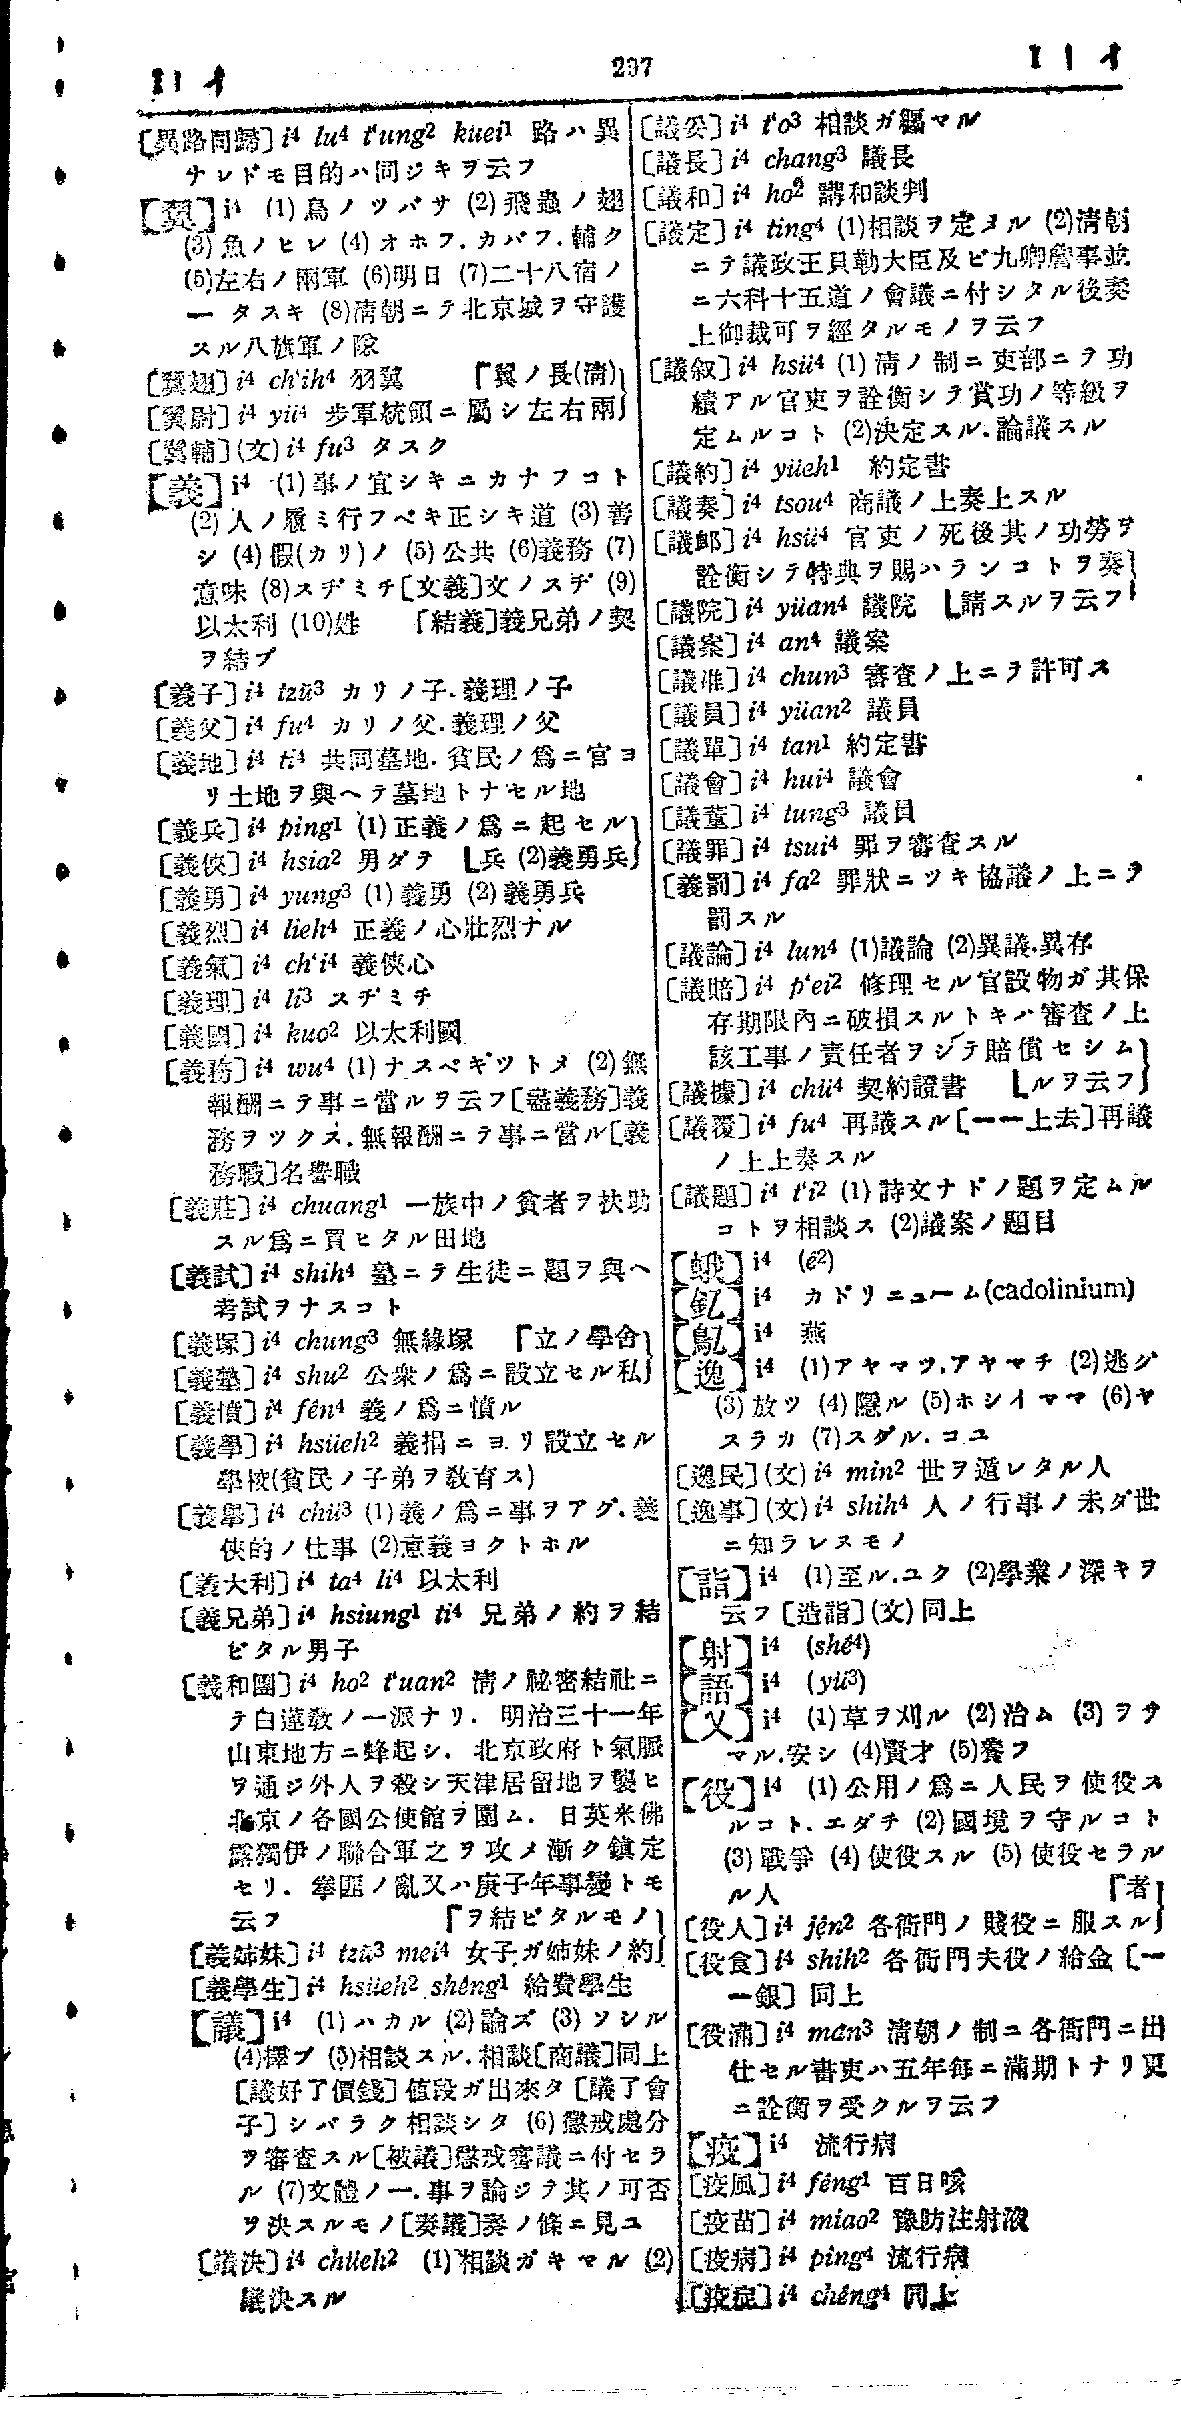 I I イ
297
I I イ
[異路同歸] i4 lu4 t'ung2 kuei1 路ハ異
ナレドモ目的ハ同ジキヲ云フ
【翼】i4 (1)鳥ノツバサ (2)飛蟲ノ翅
(3)魚ノヒレ (4)オホフ.カバフ.輔ク
(5)左右ノ兩軍 (6)明日 (7)二十八宿ノ
一 タスキ (8)淸朝ニテ北京城ヲ守護
スル八旗軍ノ隊
[翼翅] i4 ch'ih4 羽翼 「翼ノ長(淸)
[翼尉] i4 yü4 步軍統領ニ屬シ左右兩
[翼輔](文) i4 fu3 タスク
【義】i4 (1)事ノ宜シキニカナフコト
(2)人ノ履ミ行フベキ正シキ道 (3)善
シ (4)假(カリ)ノ (5)公共 (6)義務 (7)
意味 (8)スヂミチ[文義]文ノスヂ (9)
以太利 (10)姓 「結義]義兄弟ノ契
ヲ結ブ
[義子] i4 tzŭ3 カリノ子.義理ノ子
[義父] i4 fu4 カリノ父.義理ノ父
[義地] i4 ti4 共同墓地.貧民ノ爲ニ官ヨ
リ土地ヲ與ヘテ墓地トナセル地
[義兵] i4 ping1 (1)正義ノ爲ニ起セル
[義俠] i4 hsia2 男ダテ ⌊兵 (2)義勇兵
[義勇] i4 yung3 (1)義勇 (2)義勇兵
[義烈] i4 lieh4 正義ノ心壯烈ナル
[義氣] i4 ch'i4 義俠心
[義理] i4 li3 スヂミチ
[義國] i4 kuo2 以太利國
[義務] i4 wu4 (1)ナスベキツトメ (2)無
報酬ニテ事ニ當ルヲ云フ[盡義務]義
務ヲツクス.無報酬ニテ事ニ當ル[義
務職]名譽職
[義莊] i4 chuang1 一族中ノ貧者ヲ扶助
スル爲ニ買ヒタル田地
[義試] i4 shih4 塾ニテ生徒ニ題ヲ與ヘ
考試ヲナスコト
[義塚] i4 chung3 無緣塚 「立ノ學舍
[義塾] i4 shu2 公衆ノ爲ニ設立セル私
[義憤] i4 fên4 義ノ爲ニ憤ル
[義學] i4 hsüeh2 義捐ニヨリ設立セル
學校(貧民ノ子弟ヲ敎育ス)
[義擧] i4 chü3 (1)義ノ爲ニ事ヲアグ.義
俠的ノ仕事 (2)意義ヨクトホル
[義大利] i4 ta4 li4 以太利
[義兄弟] i4 hsiung1 ti4 兄弟ノ約ヲ結
ビタル男子
[義和團] i4 ho2 t'uan2 淸ノ祕密結社ニ
テ白蓮敎ノ一派ナリ. 明治三十一年
山東地方ニ蜂起シ. 北京政府ト氣脈
ヲ通ジ外人ヲ殺シ天津居留地ヲ襲ヒ
北京ノ各國公使館ヲ圍ム. 日英米佛
露獨伊ノ聯合軍之ヲ攻メ漸ク鎭定
セリ. 拳匪ノ亂又ハ庚子年事變トモ
云フ 「ヲ結ビタルモノ
[義姉妹] i4 tzŭ3 mei4 女子ガ姉妹ノ約
[義學生] i4 hsüeh2 shêng1 給費學生
【議】i4 (1)ハカル (2)論ズ (3)ソシル
(4)擇ブ (5)相談スル.相談[商議]同上
[議好了價錢]値段ガ出來タ[議了會
子]シバラク相談シタ (6)懲戒處分
ヲ審査スル[被議]懲戒審議ニ付セラ
ル (7)文體ノ一.事ヲ論ジテ其ノ可否
ヲ決スルモノ[奏議]奏ノ條ニ見ユ
[議決] i4 chüeh2 (1)相談ガキマル (2)
議決スル
[議妥] i4 t'o3 相談ガ纒マル
[議長] i4 chang3 議長
[議和] i4 ho2 講和談判
[議定] i4 ting4 (1)相談ヲ定メル (2)淸朝
ニテ議政王貝勒大臣及ビ九卿詹事並
ニ六科十五道ノ會議ニ付シタル後奏
上御裁可ヲ經タルモノヲ云フ
[議叙] i4 hsü4 (1)淸ノ制ニ吏部ニテ功
績アル官吏ヲ詮衡シテ賞功ノ等級ヲ
定ムルコト (2)決定スル.論議スル
[議約] i4 yüeh1 約定書
[議奏] i4 tsou4 商議ノ上奏上スル
[議卹] i4 hsü4 官吏ノ死後其ノ功勞ヲ
詮衡シテ特典ヲ賜ハランコトヲ奏
[議院] i4 yüan4 議院 ⌊請スルヲ云フ
[議案] i4 an4 議案
[議准] i4 chun3 審査ノ上ニテ許可ス
[議員] i4 yüan2 議員
[議單] i4 tan1 約定書
[議會] i4 hui4 議會
[議董] i4 tung3 議員
[議罪] i4 tsui4 罪ヲ審査スル
[義罰] i4 fa2 罪狀ニツキ協議ノ上ニテ
罰スル
[議論] i4 lun4 (1)議論 (2)異議.異存
[議賠] i4 p'ei2 修理セル官設物ガ其保
存期限內ニ破損スルトキハ審査ノ上
該工事ノ責任者ヲシテ賠償セシム
[議據] i4 chü4 契約證書 ⌊ルヲ云フ
[議覆] i4 fu4 再議スル[一一上去]再議
ノ上上奏スル
[議題] i4 t'i2 (1)詩文ナドノ題ヲ定ムル
コトヲ相談ス (2)議案ノ題目
【蛾】i4 (ê2)
【釔】i4 カドリニューム(cadolinium)
【鳦】i4 燕
【逸】i4 (1)アヤマツ.アヤマチ (2)逃グ
(3)放ツ (4)隱ル (5)ホシイママ (6)ヤ
スラカ (7)スグル.コユ
[逸民](文) i4 min2 世ヲ遁レタル人
[逸事](文) i4 shih4 人ノ行事ノ未ダ世
ニ知ラレヌモノ
【詣】i4 (1)至ル.ユク (2)學業ノ深キヲ
云フ[造詣](文)同上
【射】i4 (shê4)
【語】i4 (yü3)
【乂】i4 (1)草ヲ刈ル (2)治ム (3)ヲサ
マル.安シ (4)賢才 (5)養フ
【役】i4 (1)公用ノ爲ニ人民ヲ使役ス
ルコト.エダチ (2)國境ヲ守ルコト
(3)戰爭 (4)使役スル (5)使役セラル
ル人 「者
[役人] i4 jên2 各衙門ノ賤役ニ服スル
[役食] i4 shih2 各衙門夫役ノ給金[一
一銀]同上
[役滿] i4 man3 淸朝ノ制ニ各衙門ニ出
仕セル書吏ハ五年每ニ滿期トナリ更
ニ詮衡ヲ受クルヲ云フ
【疫】i4 流行病
[疫風] i4 fêng1 百日咳
[疫苗] i4 miao2 豫防注射液
[疫病] i4 ping4 流行病
[疫症] i4 chêng4 同上